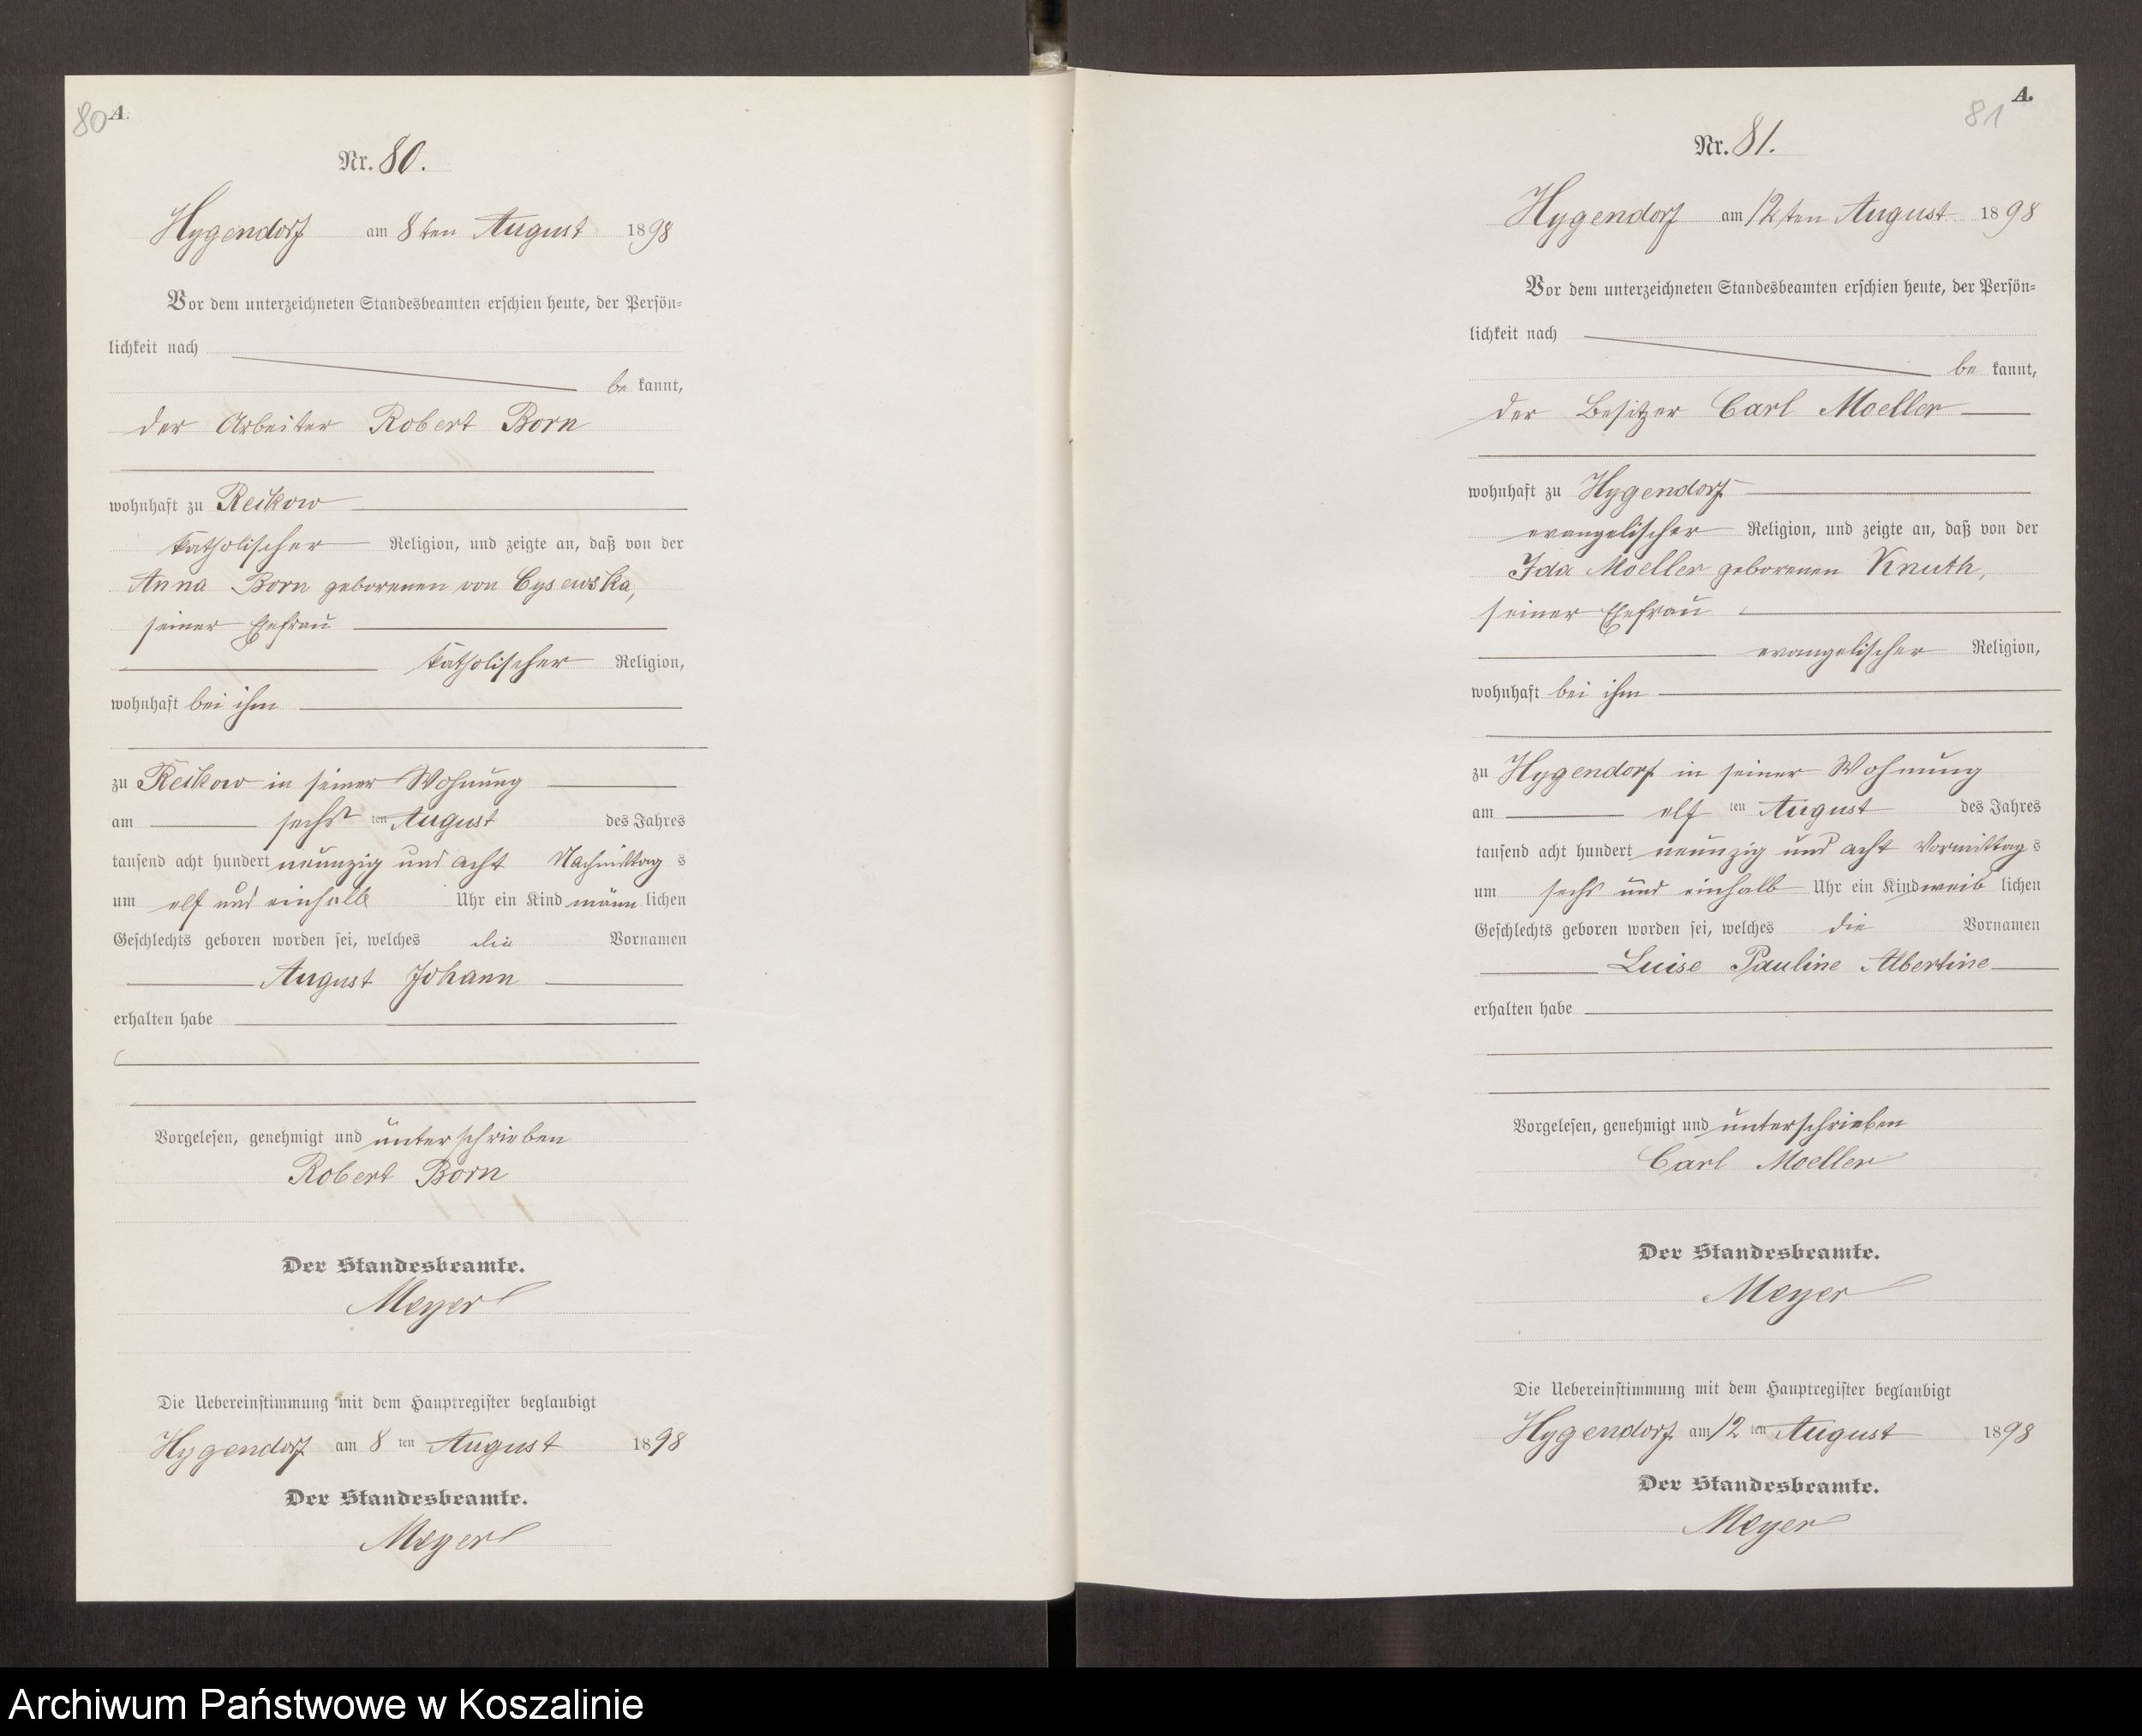 80 A.
Nr. 80.
Hygendorf am 8ten August 1898
Vor dem unterzeichneten Standesbeamten erschien heute, der Persön-
lichkeit nach
be kannt,
der Arbeiter Robert Born
wohnhaft zu Reikow
katholischer Religion, und zeigte an, daß von der
Anna Born geborenen von Cysewska,
seiner Ehefrau
katholischer Religion,
wohnhaft bei ihm
zu Reikow in seiner Wohnung
am sechs ten August des Jahres
tausend acht hundert neunzig und acht Nachmittag s
um elf und einhalb Uhr ein Kind männ lichen
Geschlechts geboren worden sei, welches die Vornamen
August Johann
erhalten habe
Vorgelesen, genehmigt und unterschrieben
Robert Born
Der Standesbeamte.
Meyer
Die Uebereinstimmung mit dem Hauptregister beglaubigt
Hygendorf am 8 ten August 1898
Der Standesbeamte.
Meyer
81 A.
Nr. 81.
Hygendorf am 12ten August 1898
Vor dem unterzeichneten Standesbeamten erschien heute, der Persön-
lichkeit nach
be kannt,
der Besitzer Carl Moeller
wohnhaft zu Hygendorf
evangelischer Religion, und zeigte an, daß von der
Ida Moeller geborenen Knuth,
seiner Ehefrau
evangelischer Religion,
wohnhaft bei ihm
zu Hygendorf in seiner Wohnung
am elf ten August des Jahres
tausend acht hundert neunzig und acht Vormittag s
um sechs und einhalb Uhr ein Kind weib lichen
Geschlechts geboren worden sei, welches die Vornamen
Luise Pauline Albertine
erhalten habe
Vorgelesen, genehmigt und unterschrieben
Carl Moeller
Der Standesbeamte.
Meyer
Die Uebereinstimmung mit dem Hauptregister beglaubigt
Hygendorf am 12 ten August 1898
Der Standesbeamte.
Meyer
Archiwum Państwowe w Koszalinie